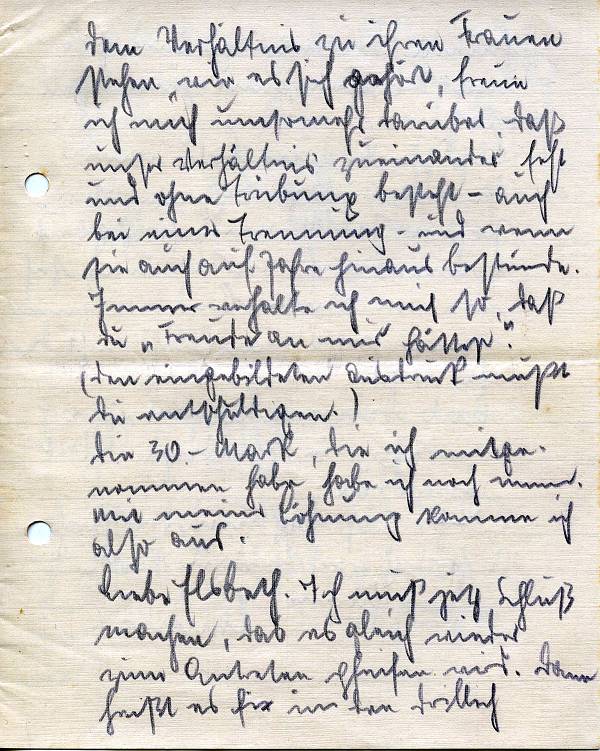 dem Verhältnis zu ihren Frauen
stehen, wie es sich gehört, freue
ich mich umsomehr darüber, daß
unser Verhältnis zueinander fest
und ohne Trübung besteht - auch
bei einer Trennung - und wenn
sie auch auf Jahre hinaus bestünde.
Immer verhalte ich mich so, daß
du „Freude an mir hättest".
(den eingebildeten Ausdruck mußt
du entschuldigen.)
die 30.- Mark, die ich mitge-
nommen habe, habe ich noch immer.
Mit meiner Löhnung komme ich
also aus.
Liebe Elsbeth. Ich muß jetzt Schluß
machen, das es gleich wieder
zum Antreten pfeifen wird. Dann
heißt es fix in den Drillich